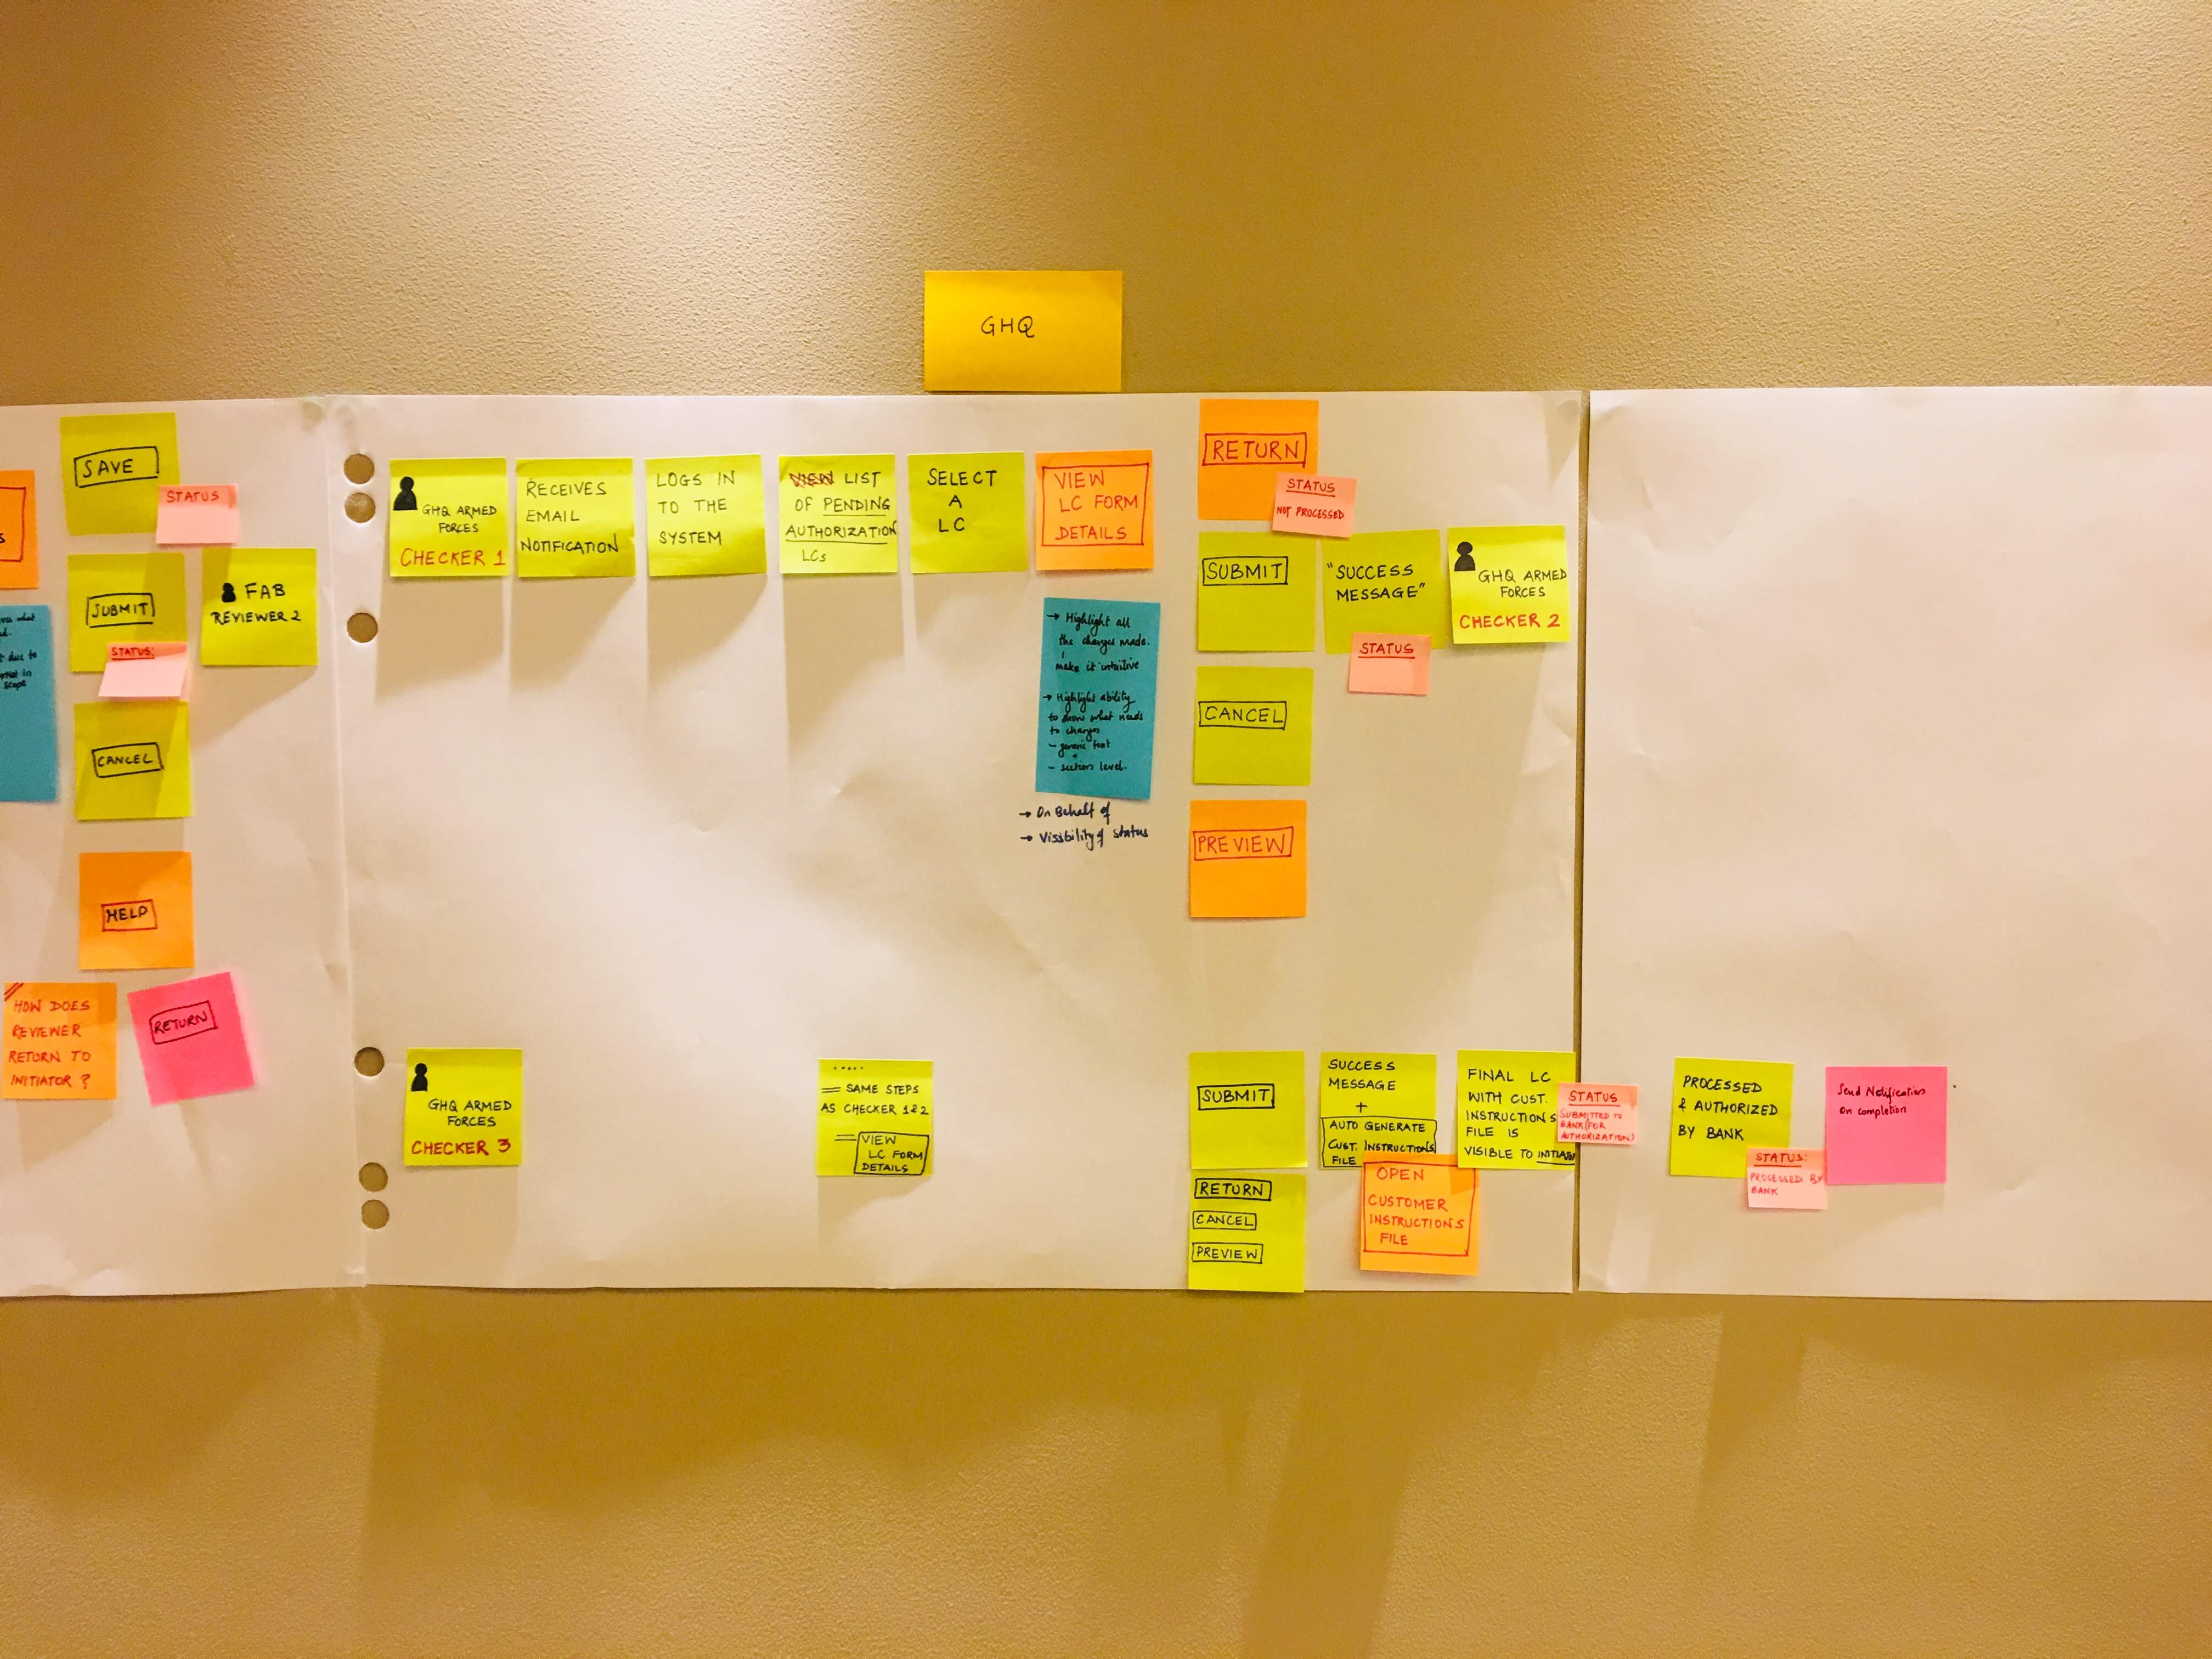 GHQ
SAVE
STATUS
SUBMIT
STATUS:
FAB
REVIEWER 2
CANCEL
HELP
HOW DOES
REVIEWER
RETURN TO
INITIATOR ?
RETURN
S
what
due to
in
scope
GHQ ARMED
FORCES
CHECKER 1
RECEIVES
EMAIL
NOTIFICATION
LOGS IN
TO THE
SYSTEM
VIEW LIST
OF PENDING
AUTHORIZATION
LCs
SELECT
A
LC
VIEW
LC FORM
DETAILS
→ Highlight all
the changes made.
make it intuitive
→ Highlight ability
to show what needs
to changes
- generic text
+
- section level.
→ On Behalf of
→ Vissbility of status
RETURN
STATUS
NOT PROCESSED
SUBMIT
"SUCCESS
MESSAGE"
STATUS
GHQ ARMED
FORCES
CHECKER 2
CANCEL
PREVIEW
GHQ ARMED
FORCES
CHECKER 3
....
= SAME STEPS
AS CHECKER 1&2
= VIEW
LC FORM
DETAILS
SUBMIT
RETURN
CANCEL
PREVIEW
SUCCESS
MESSAGE
+
AUTO GENERATE
CUST. INSTRUCTIONS
FILE
OPEN
CUSTOMER
INSTRUCTIONS
FILE
FINAL LC
WITH CUST.
INSTRUCTIONS
FILE IS
VISIBLE TO INITIATOR
STATUS
SUBMITTED TO
BANK (FOR
AUTHORIZATION)
PROCESSED
& AUTHORIZED
BY BANK
STATUS:
PROCESSED BY
BANK
Send Notification
On completion